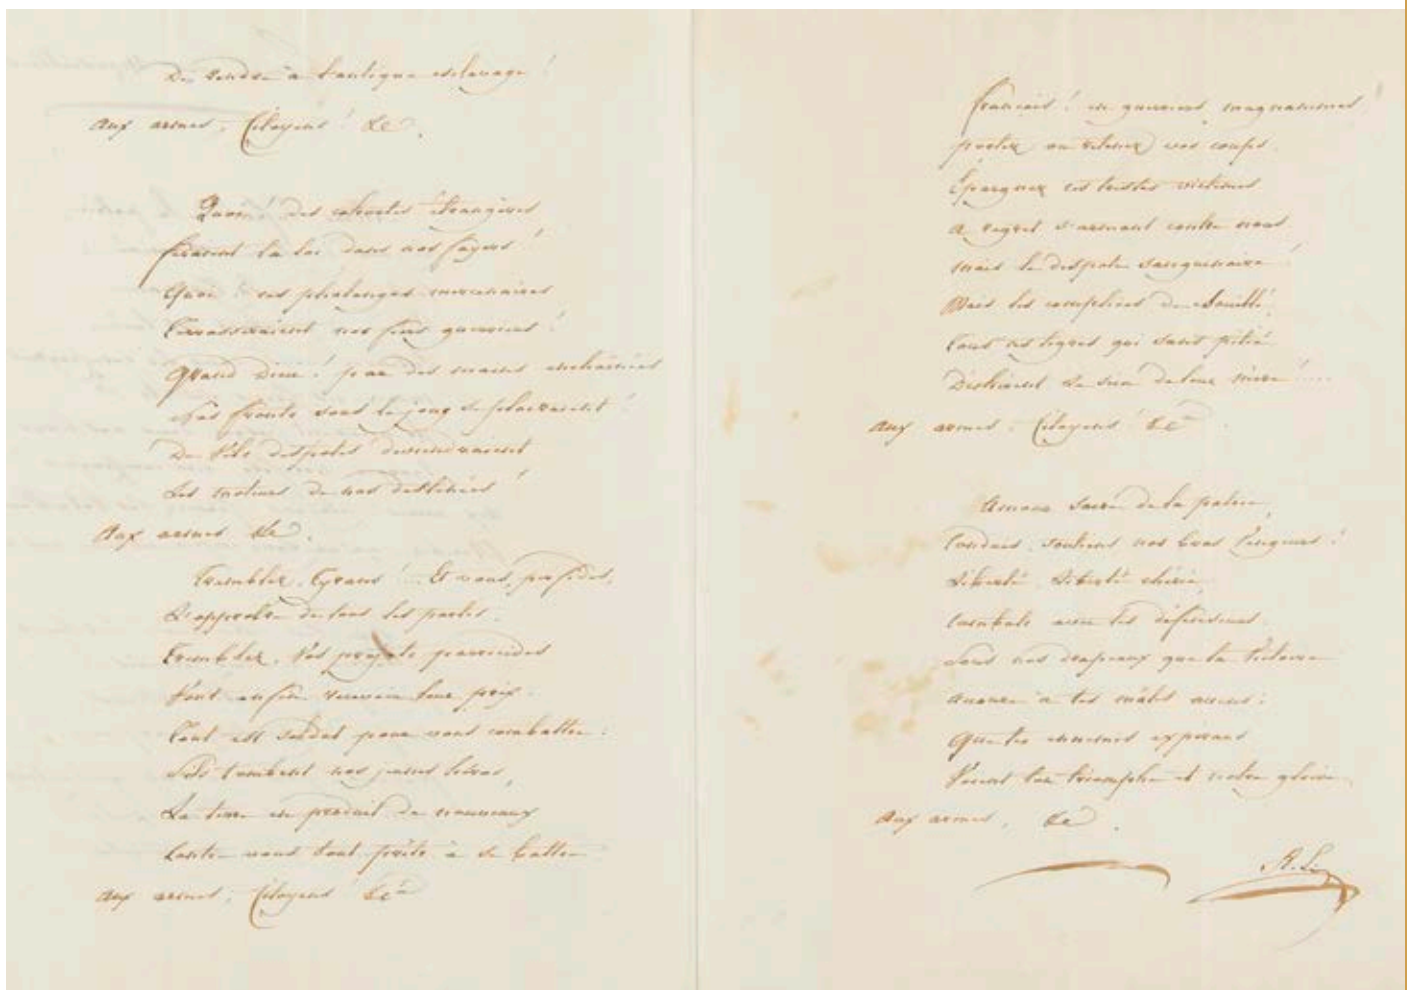 De rendre à l'antique esclavage !
Aux armes, Citoyens ! &c.
Quoi ! des cohortes étrangères
feraient la loi dans nos foyers !
Quoi ! ces phalanges mercenaires
Terrasseraient nos fiers guerriers !
Grand Dieu ! par des mains enchainées
Nos fronts sous le joug se ploieraient !
De Vils despotes deviendraient
Les maitres de nos destinées !
Aux armes &c.
Tremblez, Tyrans ! Et vous, perfides,
L'opprobre de tous les partis.
Tremblez, Vos projets parricides
Vont enfin recevoir leur prix.
Tout est soldat pour vous combattre :
S'ils tombent nos jeunes héros,
La terre en produit de nouveaux
Contre vous tout prêts à se battre
Aux armes, Citoyens ! &c
français ! en guerriers magnanimes !
portez ou retenez vos coups.
Épargnez ces tristes victimes
A regret s'armant contre nous.
Mais le despote sanguinaire !
Mais les complices de Bouillé !
Tous ces tigres qui sans pitié
Déchirent le sein de leur mère !....
Aux armes, Citoyens ! &c
Amour sacré de la patrie,
Conduis, soutiens nos bras Vengeurs !
Liberté, Liberté chérie,
Combats avec tes défenseurs.
Sous nos drapeaux que la Victoire
Accoure à tes mâles accens :
Que tes ennemis expirans
Voient ton triomphe et notre gloire
Aux armes, &c.
R. L.